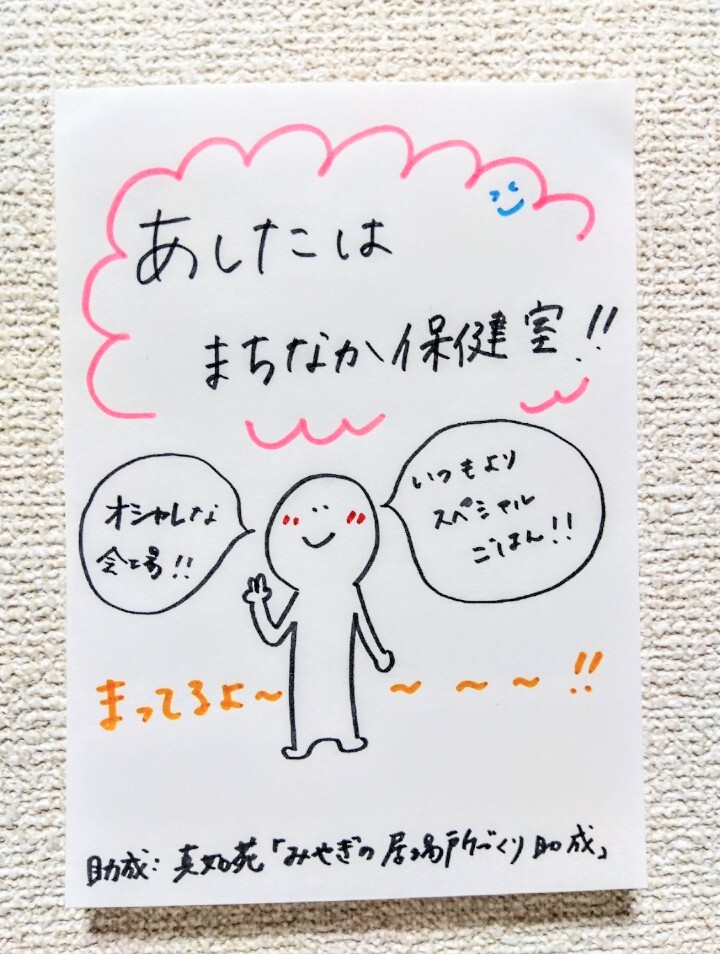 あしたは
まちなか保健室!!
オシャレな
会場!!
いつもより
スペシャル
ごはん!!
まってるよ〜 〜 〜 〜 !!
助成：真如苑「みやぎの居場所づくり助成」